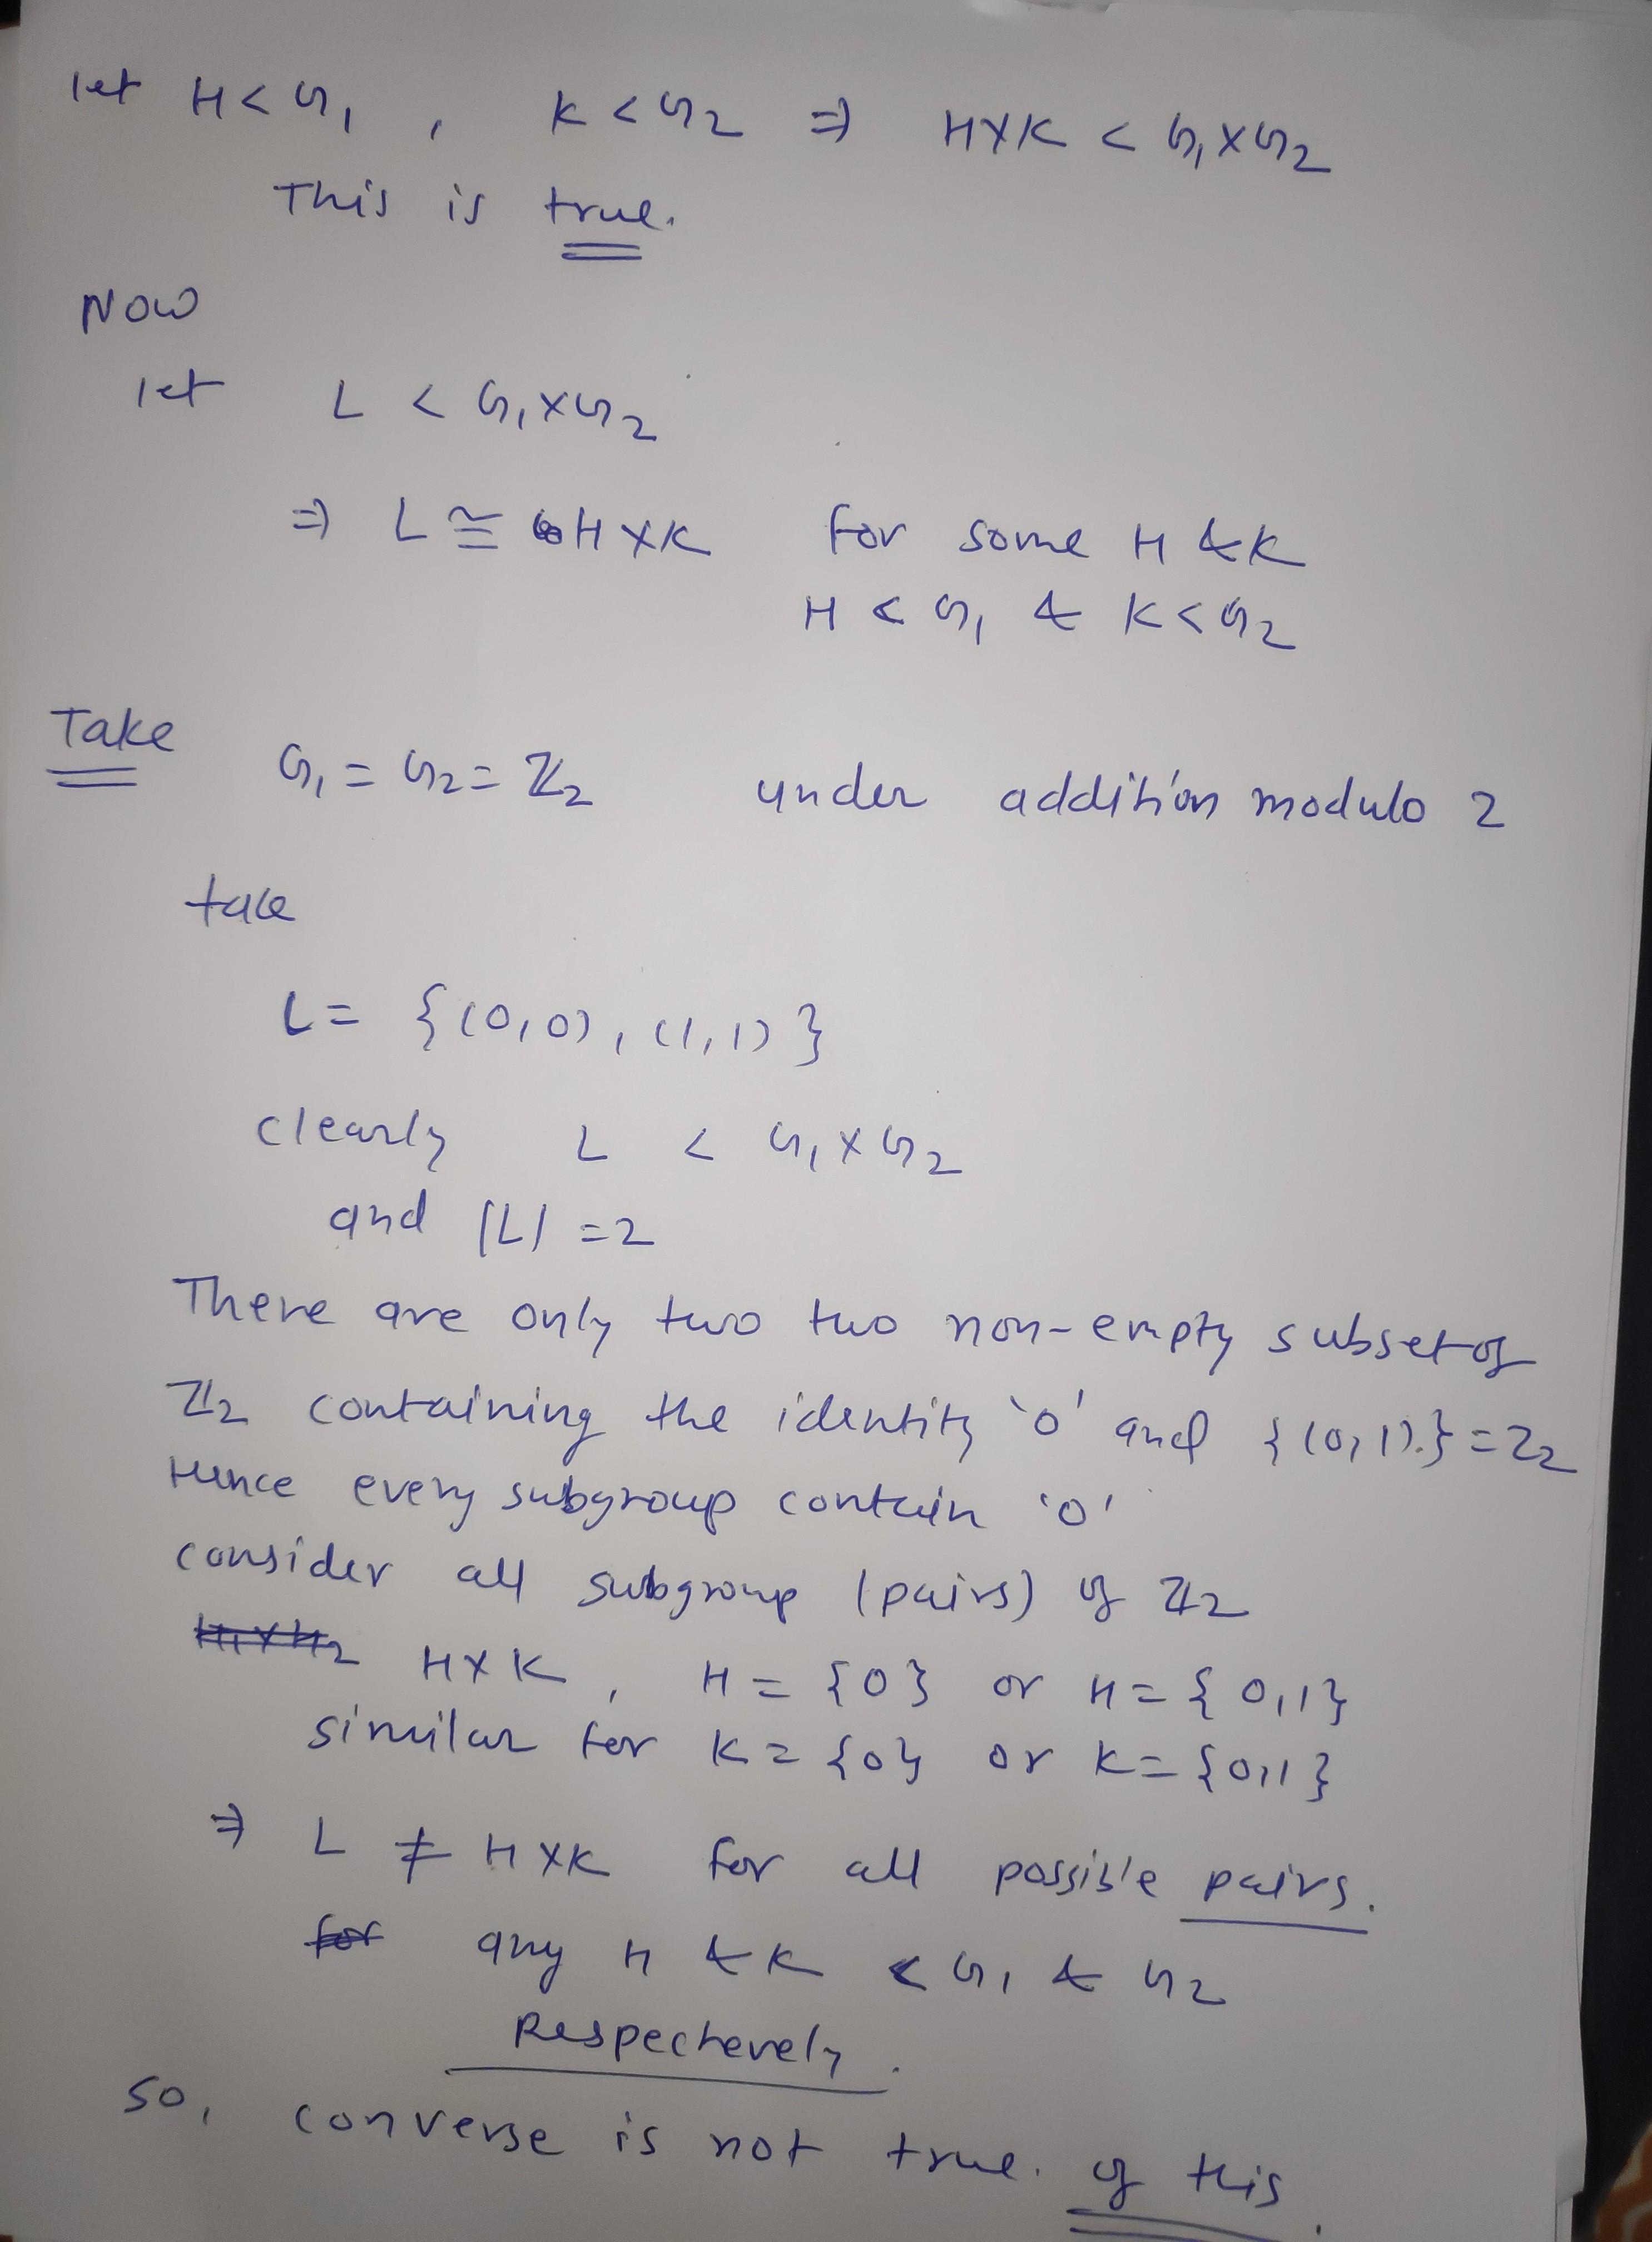 let H < G₁ , K < G₂ ⇒ H×K < G₁×G₂
This is true.
Now
let L < G₁×G₂
⇒ L ≅ H×K for some H & K
H < G₁ & K < G₂
Take G₁ = G₂ = ℤ₂ under addition modulo 2
take
L = {(0,0), (1,1)}
clearly L < G₁×G₂
and |L| = 2
There are only two two non-empty subset of
ℤ₂ containing the identity '0' and {(0,1).} = ℤ₂
Hence every subgroup contain '0'
consider all subgroup (pairs) of ℤ₂
H×K , H = {0} or H = {0,1}
similar for K = {0} or K = {0,1}
⇒ L ≠ H×K for all possible pairs.
for any H & K < G₁ & G₂
Respectevely.
So, converse is not true. of this.